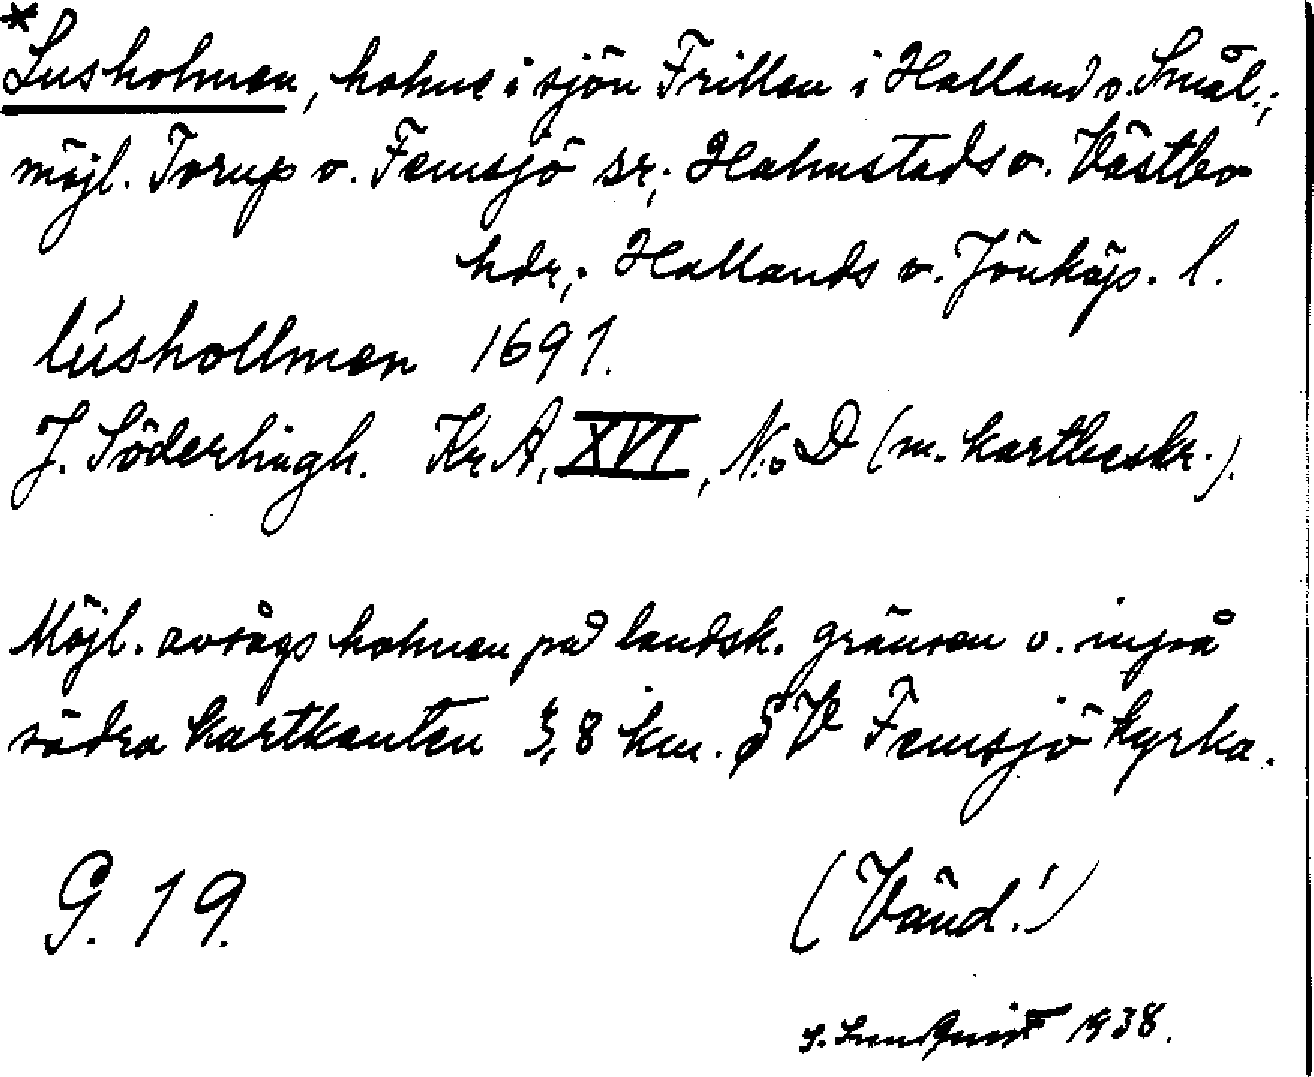 *Lusholmen, holme i sjön Frillen i Halland o. Smål.;
möjl. Torup o. Femsjö sr; Halmstads o. Västbo
hdr; Hallands o. Jönköp. l.
lúshollmen 1691.
J. Söderlingh. Kr. A. XVI, No D (m. kartbeskr.).
Möjl. avsågs holmen på landsk. gränsen v. inpå
södra kartkanten 3,8 km. S V Femsjö kyrka.
G. 19.
(Vänd!)
S. Lundquist 1938.